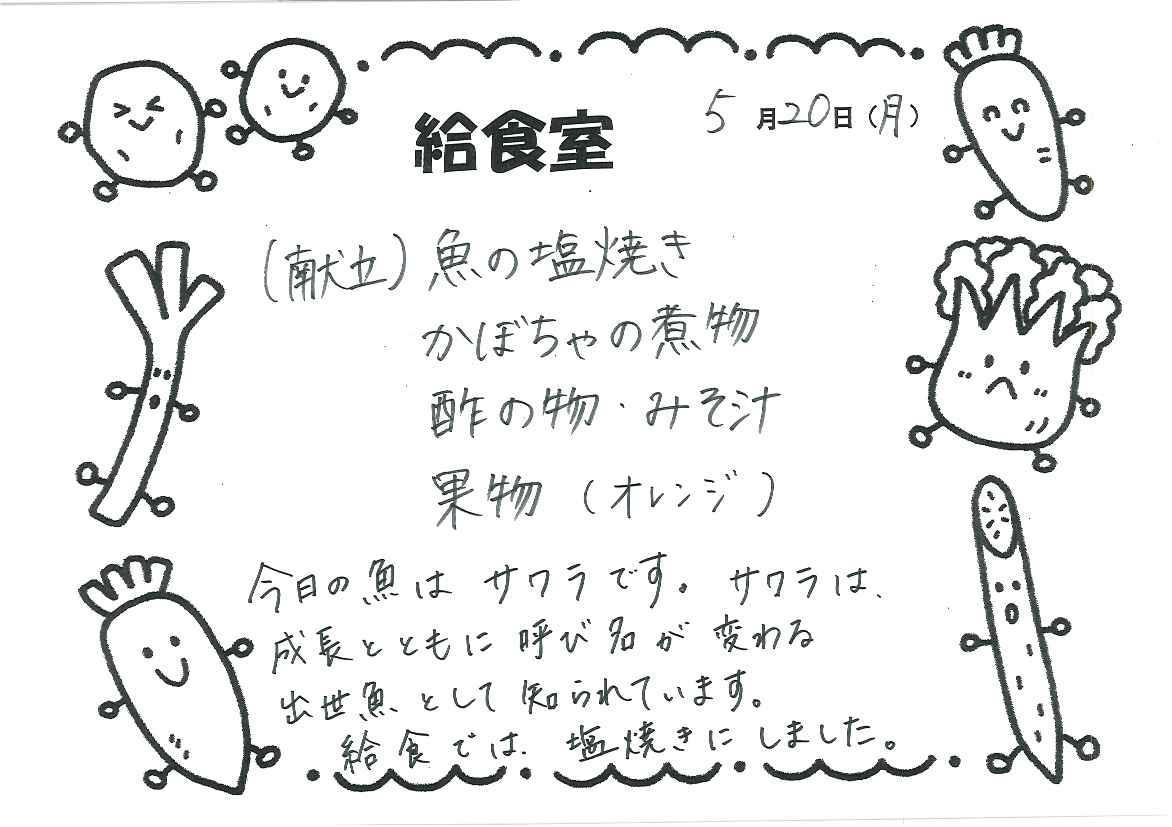 給食室
5月20日(月)
(献立)魚の塩焼き
かぼちゃの煮物
酢の物・みそ汁
果物(オレンジ)
今日の魚は サワラです。サワラは、
成長とともに呼び名が変わる
出世魚として知られています。
給食では、塩焼きにしました。